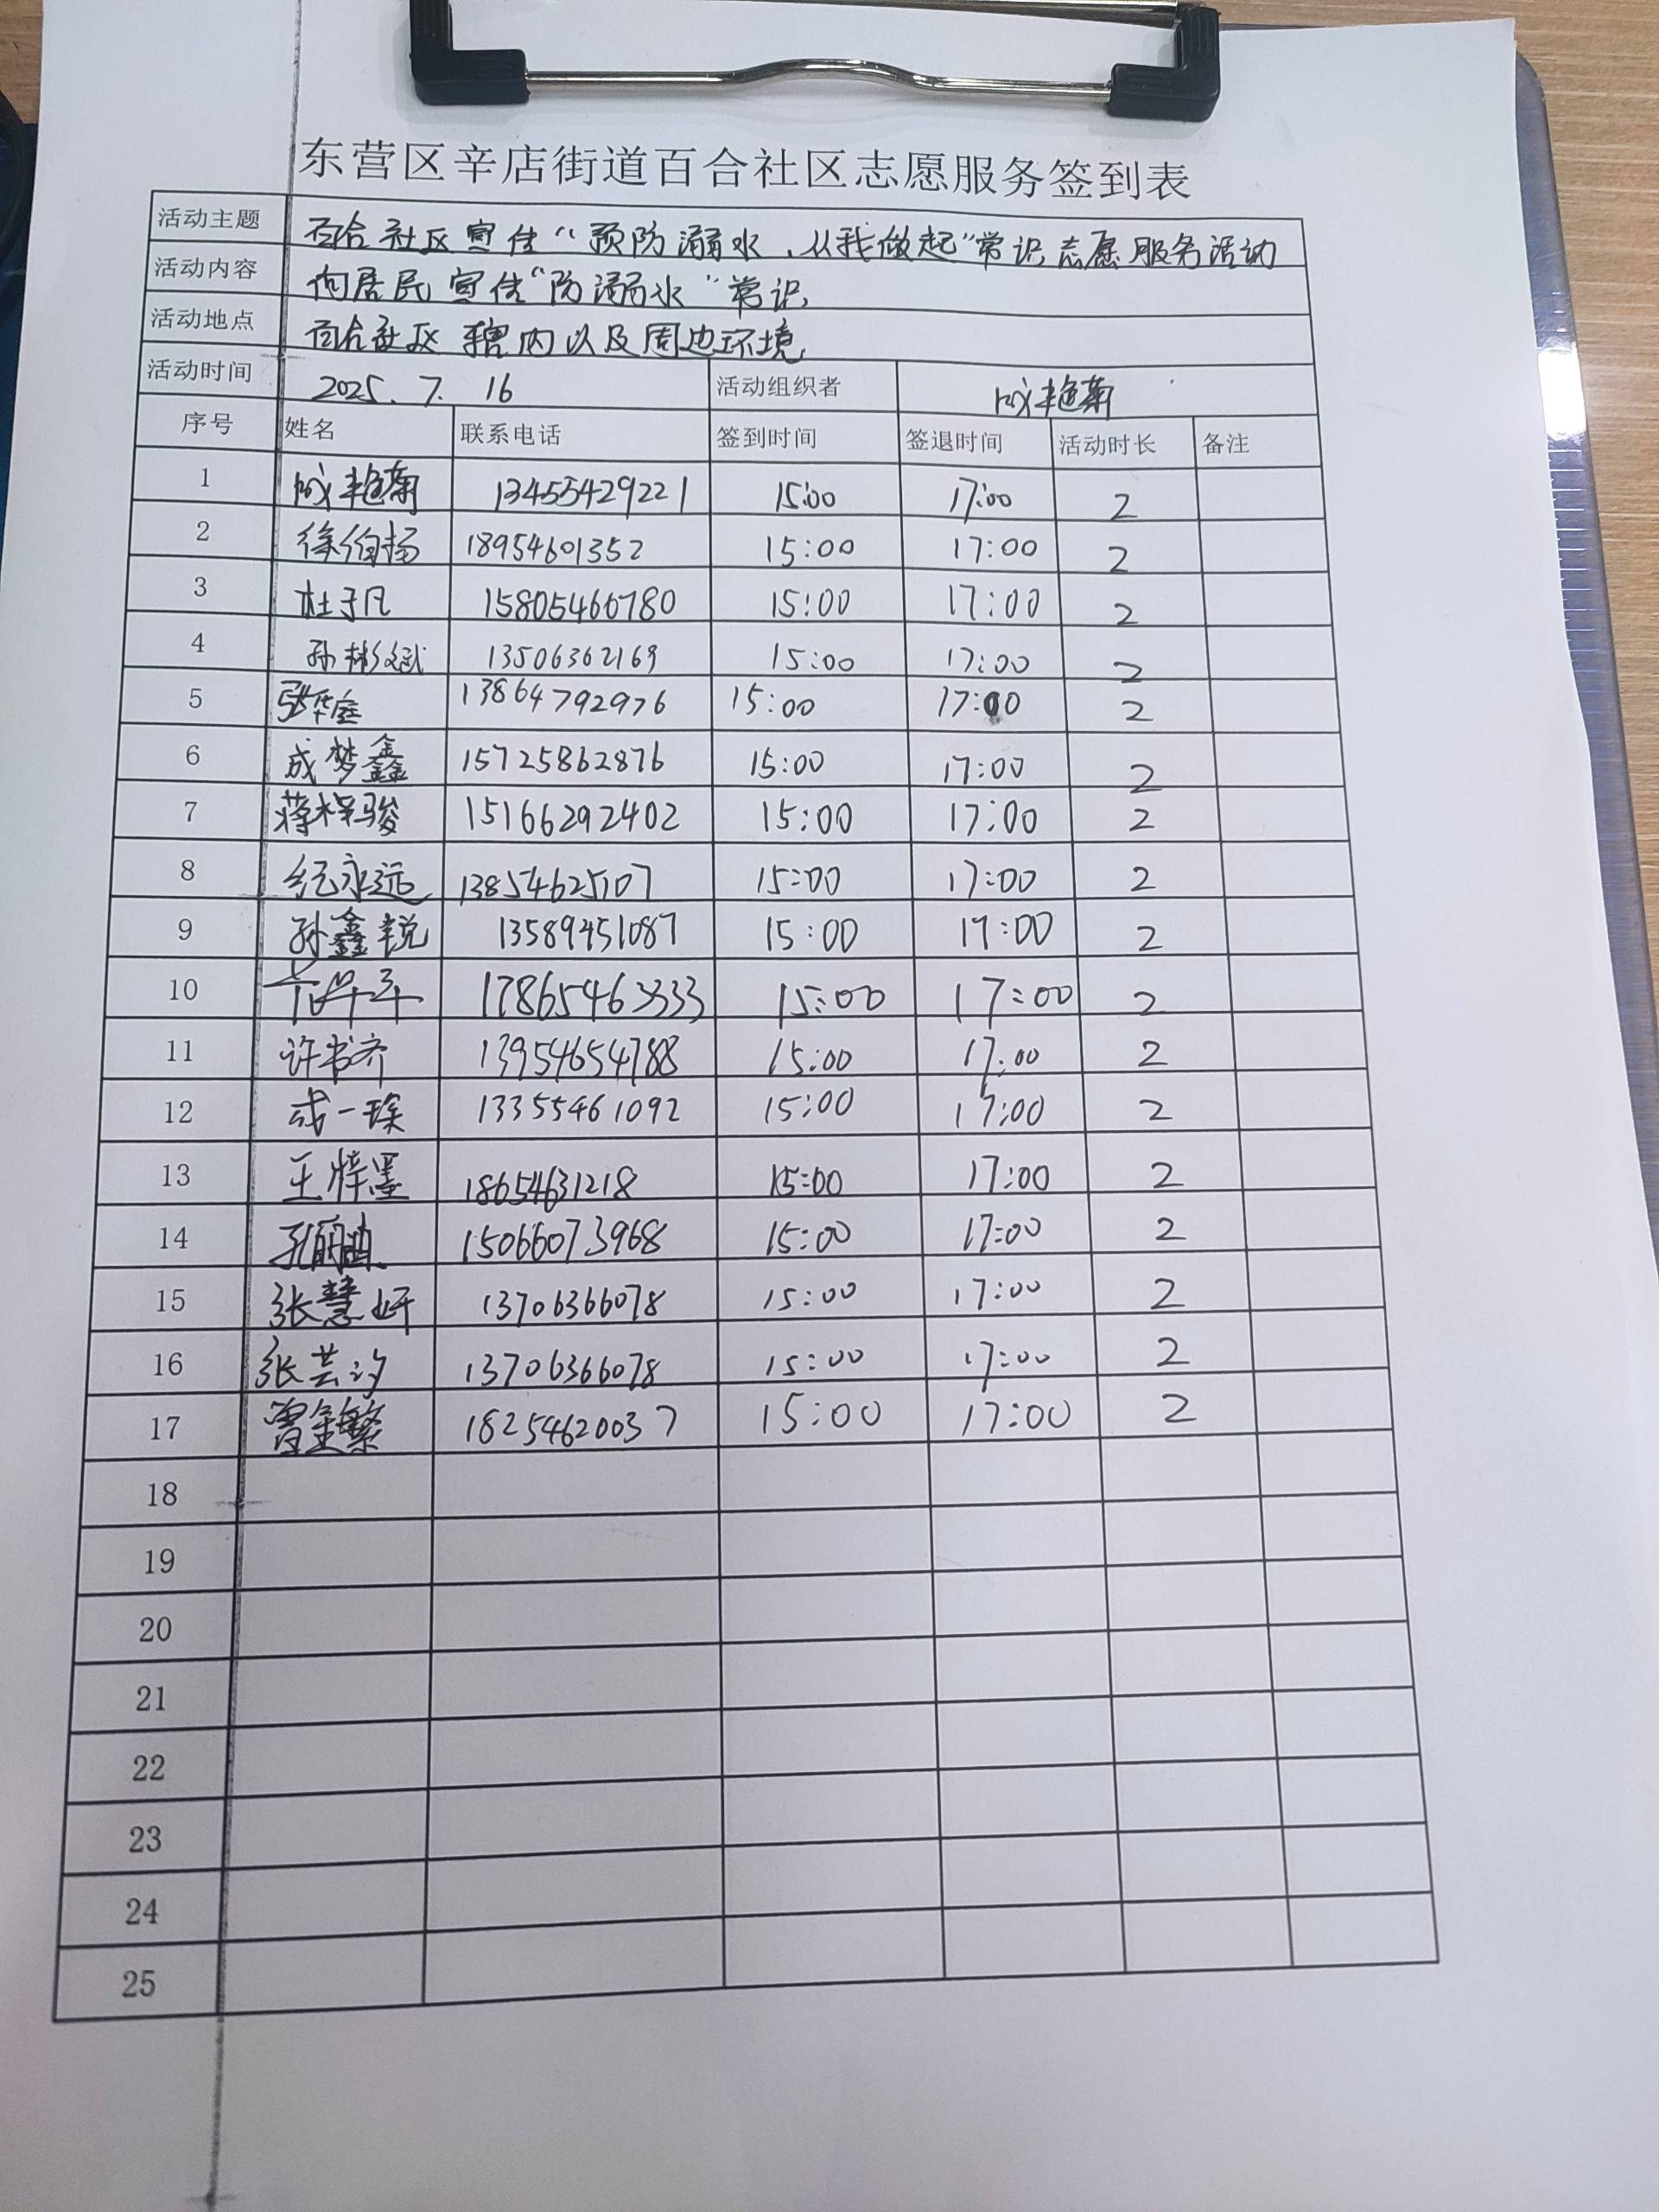 东营区辛店街道百合社区志愿服务签到表
活动主题 百合社区宣传“预防溺水,从我做起”常识志愿服务活动
活动内容 向居民宣传“防溺水”常识
活动地点 百合社区辖内以及周边环境
活动时间 2025.7.16 活动组织者 成艳菊
序号 姓名 联系电话 签到时间 签退时间 活动时长 备注
1 成艳菊 13455429221 15:00 17:00 2
2 徐伯扬 18954601352 15:00 17:00 2
3 杜子凡 15805460780 15:00 17:00 2
4 孙彬斌 13506362169 15:00 17:00 2
5 张华庭 13864792976 15:00 17:00 2
6 成梦鑫 15725862876 15:00 17:00 2
7 蒋梓骏 15166292402 15:00 17:00 2
8 纪永远 13854625107 15:00 17:00 2
9 孙鑫锐 13589451087 15:00 17:00 2
10 17865463333 15:00 17:00 2
11 许书齐 13954654788 15:00 17:00 2
12 成一瑛 13355461092 15:00 17:00 2
13 王梓墨 18654631218 15:00 17:00 2
14 孔 15066073968 15:00 17:00 2
15 张慧妍 13706366078 15:00 17:00 2
16 张芸汐 13706366078 15:00 17:00 2
17 曹金繁 18254620037 15:00 17:00 2
18
19
20
21
22
23
24
25